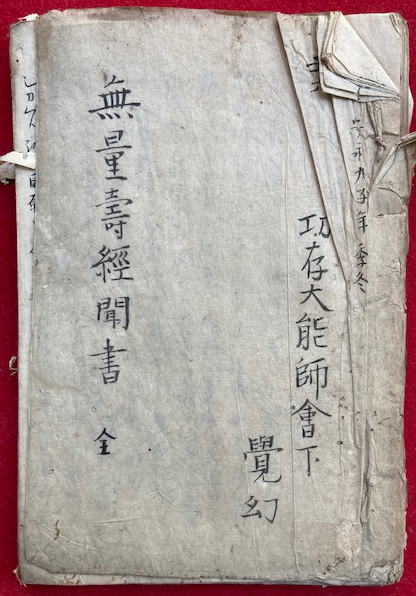 安永九子年季冬
功存大能師會下
覺幻
無量壽經聞書 全